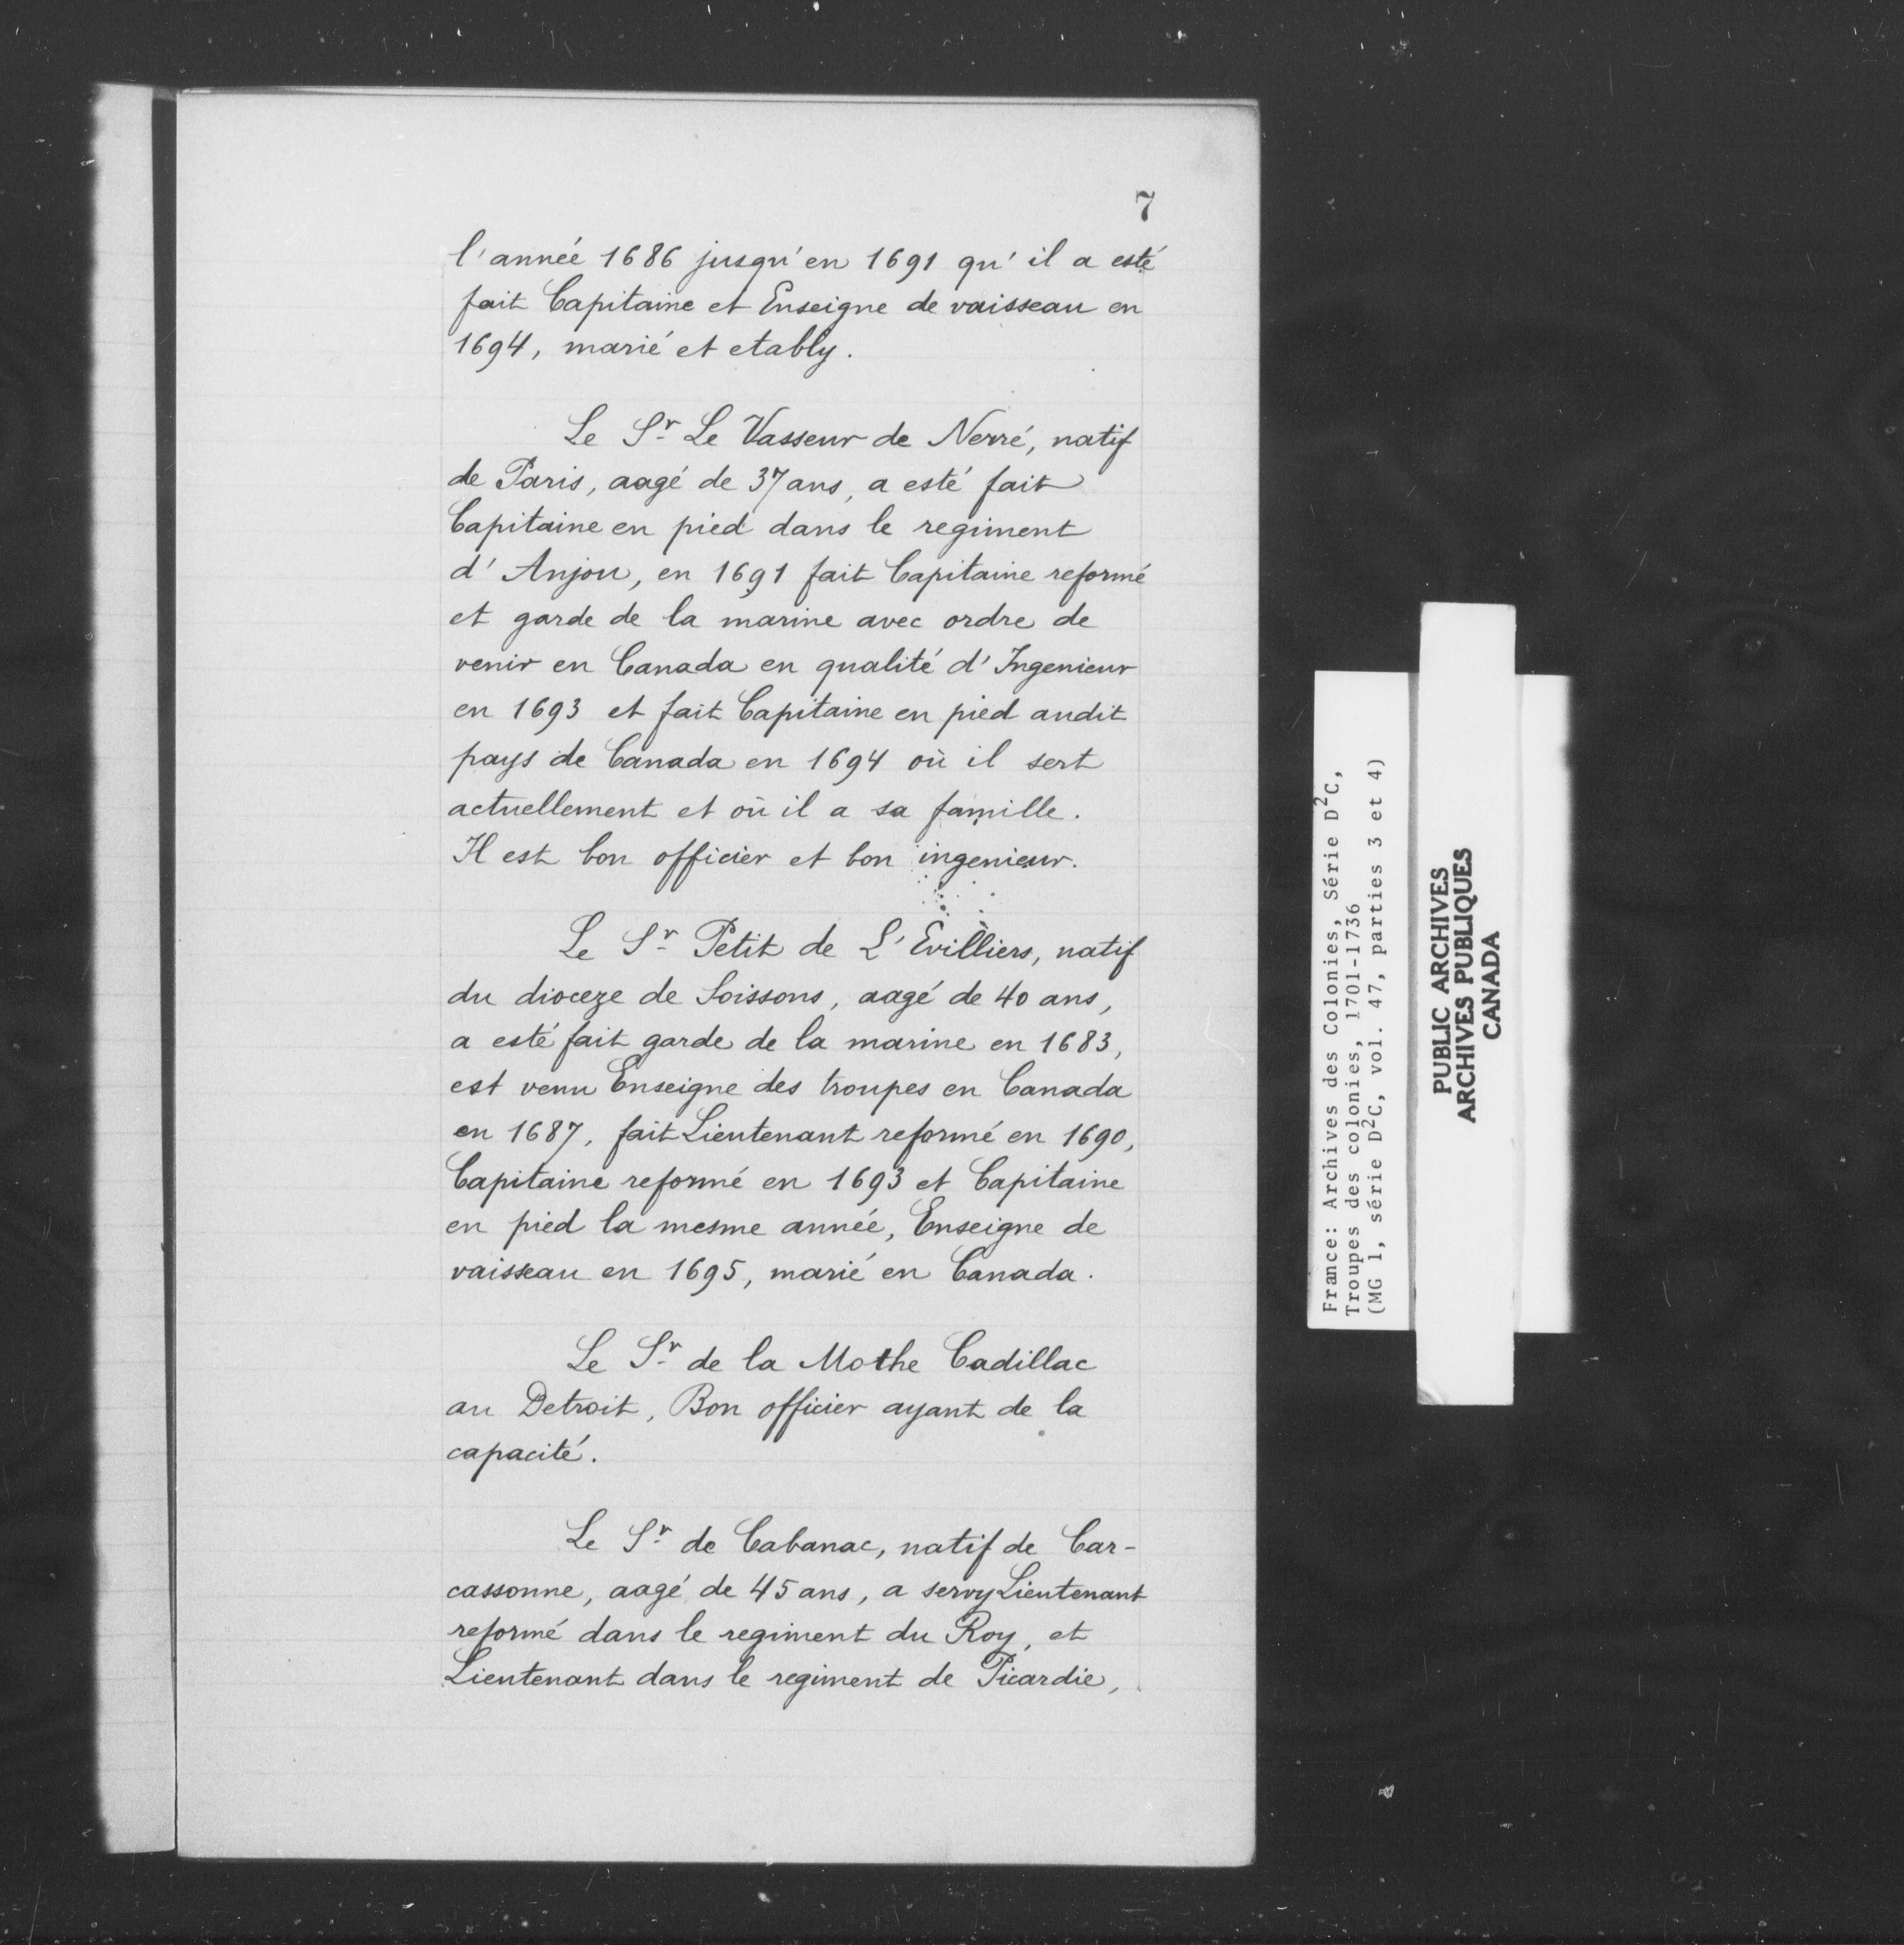 7
l'année 1686 jusqu'en 1691 qu'il a esté
fait Capitaine et Enseigne de vaisseau en
1694, marié et etably.
Le Sr Le Vasseur de Nerré, natif
de Paris, aagé de 37 ans, a esté fait
Capitaine en pied dans le regiment
d'Anjou, en 1691 fait Capitaine reformé
et garde de la marine avec ordre de
venir en Canada en qualité d'Ingenieur
en 1693 et fait Capitaine en pied audit
pays de Canada en 1694 où il sert
actuellement et où il a sa famille.
Il est bon officier et bon ingenieur.
Le Sr Petit de L'Evilliers, natif
du dioceze de Soissons, aagé de 40 ans,
a esté fait garde de la marine en 1683,
est venu Enseigne des troupes en Canada
en 1687, fait Lieutenant reformé en 1690,
Capitaine reformé en 1693 et Capitaine
en pied la mesme année, Enseigne de
vaisseau en 1695, marié en Canada.
Le Sr de la Mothe Cadillac
au Detroit, Bon officier ayant de la
capacité.
Le Sr de Cabanac, natif de Car-
cassonne, aagé de 45 ans, a servy Lieutenant
reformé dans le regiment du Roy, et
Lieutenant dans le regiment de Picardie,
France: Archives des Colonies, Série D²C,
Troupes des colonies, 1701-1736
(MG 1, série D²C, vol. 47, parties 3 et 4)
PUBLIC ARCHIVES
ARCHIVES PUBLIQUES
CANADA